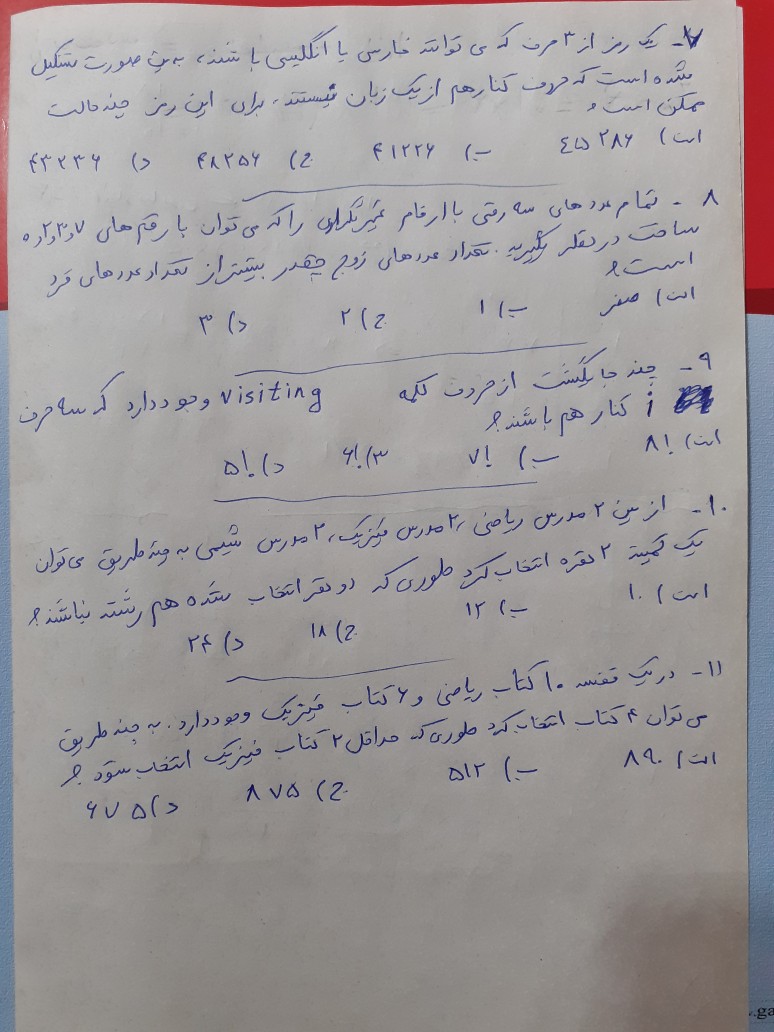 ۷- یک رمز از ۳ حرف که می توانند فارسی یا انگلیسی باشند، به صورت تشکیل
شده است که حروف کنار هم از یک زبان نیستند. برای این رمز چند حالت
ممکن است؟
الف) ۴۵۲۸۶ ب) ۴۱۲۲۶ ج) ۴۸۲۵۶ د) ۴۳۲۳۶
۸- تمام عدد های سه رقمی با ارقام غیرتکراری را که می توان با رقم های ۷و۳و۲و۵
ساخت در نظر بگیرید. تعداد عددهای زوج چقدر بیشتر از تعداد عددهای فرد
است؟
الف) صفر ب) ۱ ج) ۲ د) ۳
۹- چند جایگشت از حروف کلمه visiting وجود دارد که سه حرف
i کنار هم باشند؟
الف) ۸! ب) ۷! ۳) ۶! د) ۵!
۱۰- از بین ۲ مدرس ریاضی، ۲ مدرس فیزیک، ۲ مدرس شیمی به چند طریق می توان
یک کمیته ۲ نفره انتخاب کرد طوری که دو نفر انتخاب شده هم رشته نباشند؟
الف) ۱۰ ب) ۱۲ ج) ۱۸ د) ۲۴
۱۱- در یک قفسه ۱۰ کتاب ریاضی و ۶ کتاب فیزیک وجود دارد. به چند طریق
می توان ۴ کتاب انتخاب کرد طوری که حداقل ۲ کتاب فیزیک انتخاب شود؟
الف) ۸۹۰ ب) ۵۱۲ ج) ۸۷۵ د) ۶۷۵